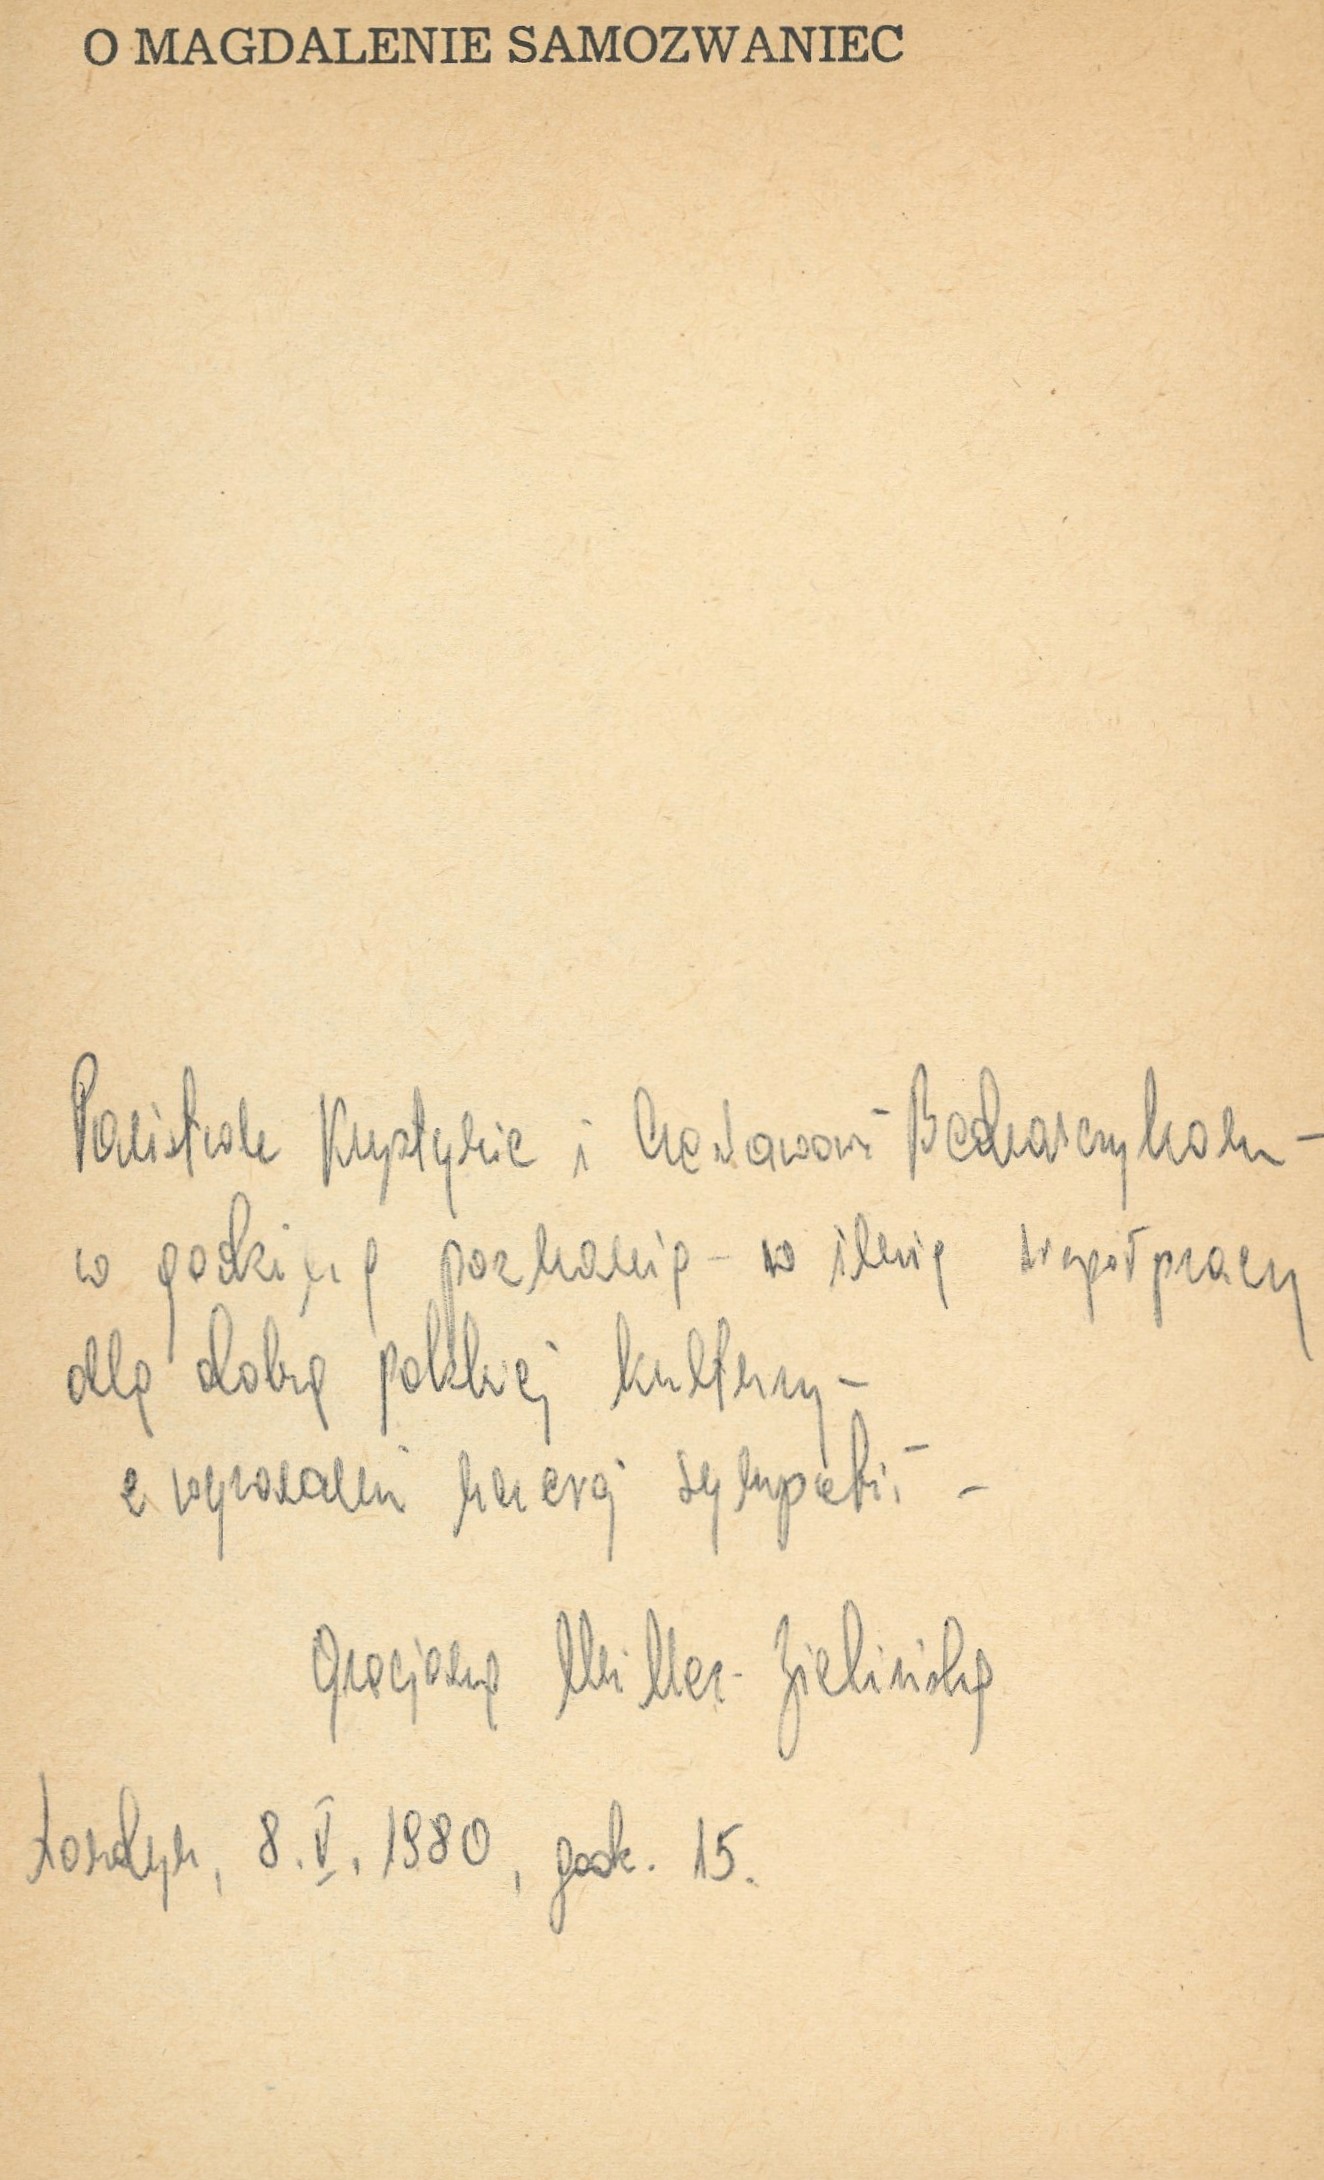 O MAGDALENIE SAMOZWANIEC
Państwu Krystynie i Czesławowi Bednarczykom –
w godzinę poznania – w imię współpracy
dla dobra polskiej kultury –
z wyrazami szczerej sympatii –
Gracjana Miller-Zielińska
Londyn, 8.V.1980, godz. 15.